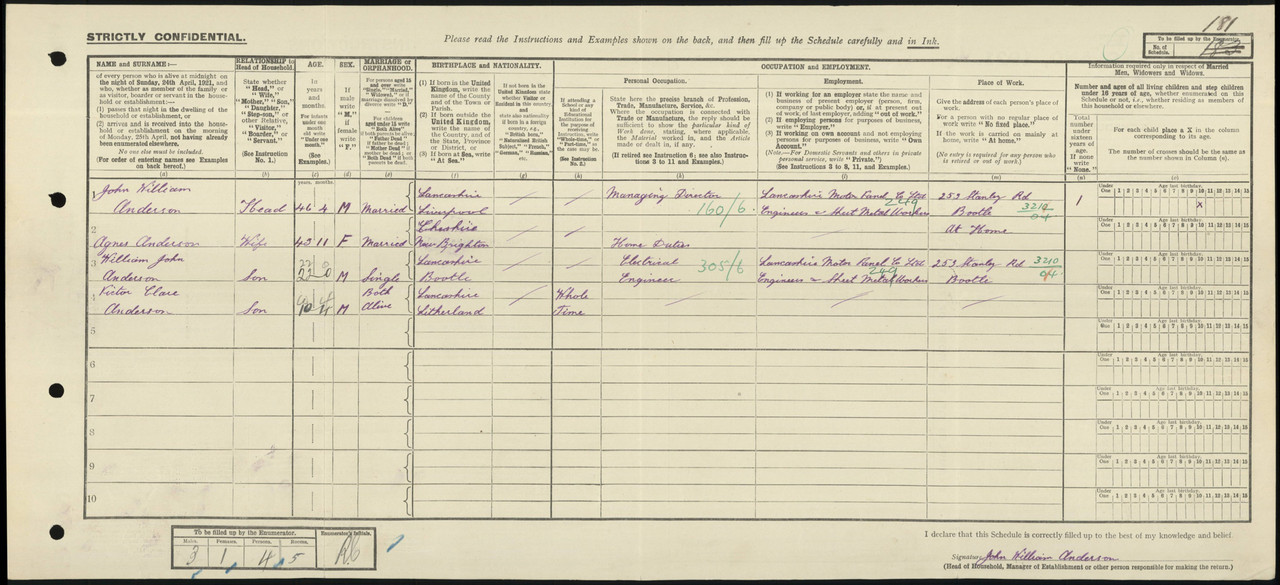 181
STRICTLY CONFIDENTIAL.
Please read the Instructions and Examples shown on the back, and then fill up the Schedule carefully and in Ink.
To be filled up by the Enumerator.
No. of Schedule.
NAME and SURNAME:—
of every person who is alive at midnight on
the night of Sunday, 24th April, 1921, and
who, whether as member of the family or
as visitor, boarder or servant in the house-
hold or establishment:—
(1) passes that night in the dwelling of
the household or establishment, or
(2) arrives and is received into the house-
hold or establishment on the morning
of Monday, 25th April, not having already
been enumerated elsewhere.
No one else must be included.
(For order of entering names see Examples
on back hereof.)
(a)
RELATIONSHIP to
Head of Household.
State whether
"Head," or
"Wife,"
"Mother," "Son,"
"Daughter,"
"Step-son," or
other Relative,
"Visitor,"
"Boarder," or
"Servant."
(See Instruction
No. 1.)
(b)
AGE.
In
years
and
months.
For infants
under one
month
old write
"Under one
month."
(See
Examples.)
(c)
SEX.
If
male
write
"M."
If
female
write
"F."
(d)
MARRIAGE or
ORPHANHOOD.
For persons aged 15
and over write
"Single," "Married,"
"Widowed," or if
marriage dissolved by
divorce write "D."
For children
aged under 15 write
"Both Alive"
if both parents be alive,
"Father Dead" if
father be dead;
"Mother Dead" if
mother be dead;
"Both Dead" if both
parents be dead.
(e)
BIRTHPLACE and NATIONALITY.
(1) If born in the United
Kingdom, write the
name of the County
and of the Town or
Parish.
(2) If born outside the
United Kingdom,
write the name of
the Country, and
of the State, Province
or District, or
(3) If born at Sea, write
"At Sea."
(f)
If not born in the
United Kingdom state
whether Visitor or
Resident in this country,
and
state if born in a foreign
country, e.g.,
(g)
OCCUPATION and EMPLOYMENT.
If attending a
School or any
kind of
Educational
Institution for
the purpose of
receiving
Instruction, write
"Whole-time," or
"Part-time," as
the case may be.
(See Instruction
No. 2.)
(h)
Personal Occupation.
State here the precise branch of Profession,
Trade, Manufacture, Service, &c.
Where the occupation is connected with
Trade or Manufacture, the reply should be
sufficient to show the particular kind of
Work done, stating, where applicable,
the Material worked in, and the Article
made or dealt in, if any.
(If retired see Instruction 6; see also Instruc-
tions 3 to 11 and Examples.)
(k)
Employment.
(1) If working for an employer state the name and
business of present employer (person, firm,
company or public body) or, if at present out
of work, of last employer, adding "out of work."
(2) If employing persons for purposes of business,
write "Employer."
(3) If working on own account and not employing
persons for purposes of business, write "Own
Account."
(Note.—For Domestic Servants and others in private
personal service, write "Private.")
(See Instructions 3 to 8, 11, and Examples.)
(l)
Place of Work.
Give the address of each person's place of
work.
For a person with no regular place of
work write "No fixed place."
If the work is carried on mainly at
home, write "At home."
(No entry is required for any person who
is retired or out of work.)
(m)
Information required only in respect of Married
Men, Widowers and Widows.
Number and ages of all living children and step children
under 16 years of age, whether enumerated on this
Schedule or not, i.e., whether residing as members of
this household or elsewhere.
Total
number
under
sixteen
years of
age.
If none
write
"None."
(n)
For each child place a X in the column
corresponding to its age.
The number of crosses should be the same as
the number shown in Column (n).
(o)
1 John William Anderson Head 46 4 M Married Lancashire Liverpool Managing Director 160/6 Lancashire Motor Panel Co Ltd Engineers & Sheet Metal Workers 249 253 Stanley Rd Bootle 1 X
2 Agnes Anderson Wife 43 11 F Married Cheshire New Brighton Home Duties At Home
3 William John Anderson Son 22 0 M Single Lancashire Bootle Electrical Engineer 305/6 Lancashire Motor Panel Co Ltd Engineers & Sheet Metal Workers 249 253 Stanley Rd Bootle 3210
4 Victor Clare Anderson Son M Both Alive Lancashire Litherland Whole Time
5
6
7
8
9
10
To be filled up by the Enumerator.
Males. Females. Persons. Rooms.
3 1 4 5
Enumerator's Initials.
I declare that this Schedule is correctly filled up to the best of my knowledge and belief.
Signature John William Anderson
(Head of Household, Manager of Establishment or other person responsible for making the return.)